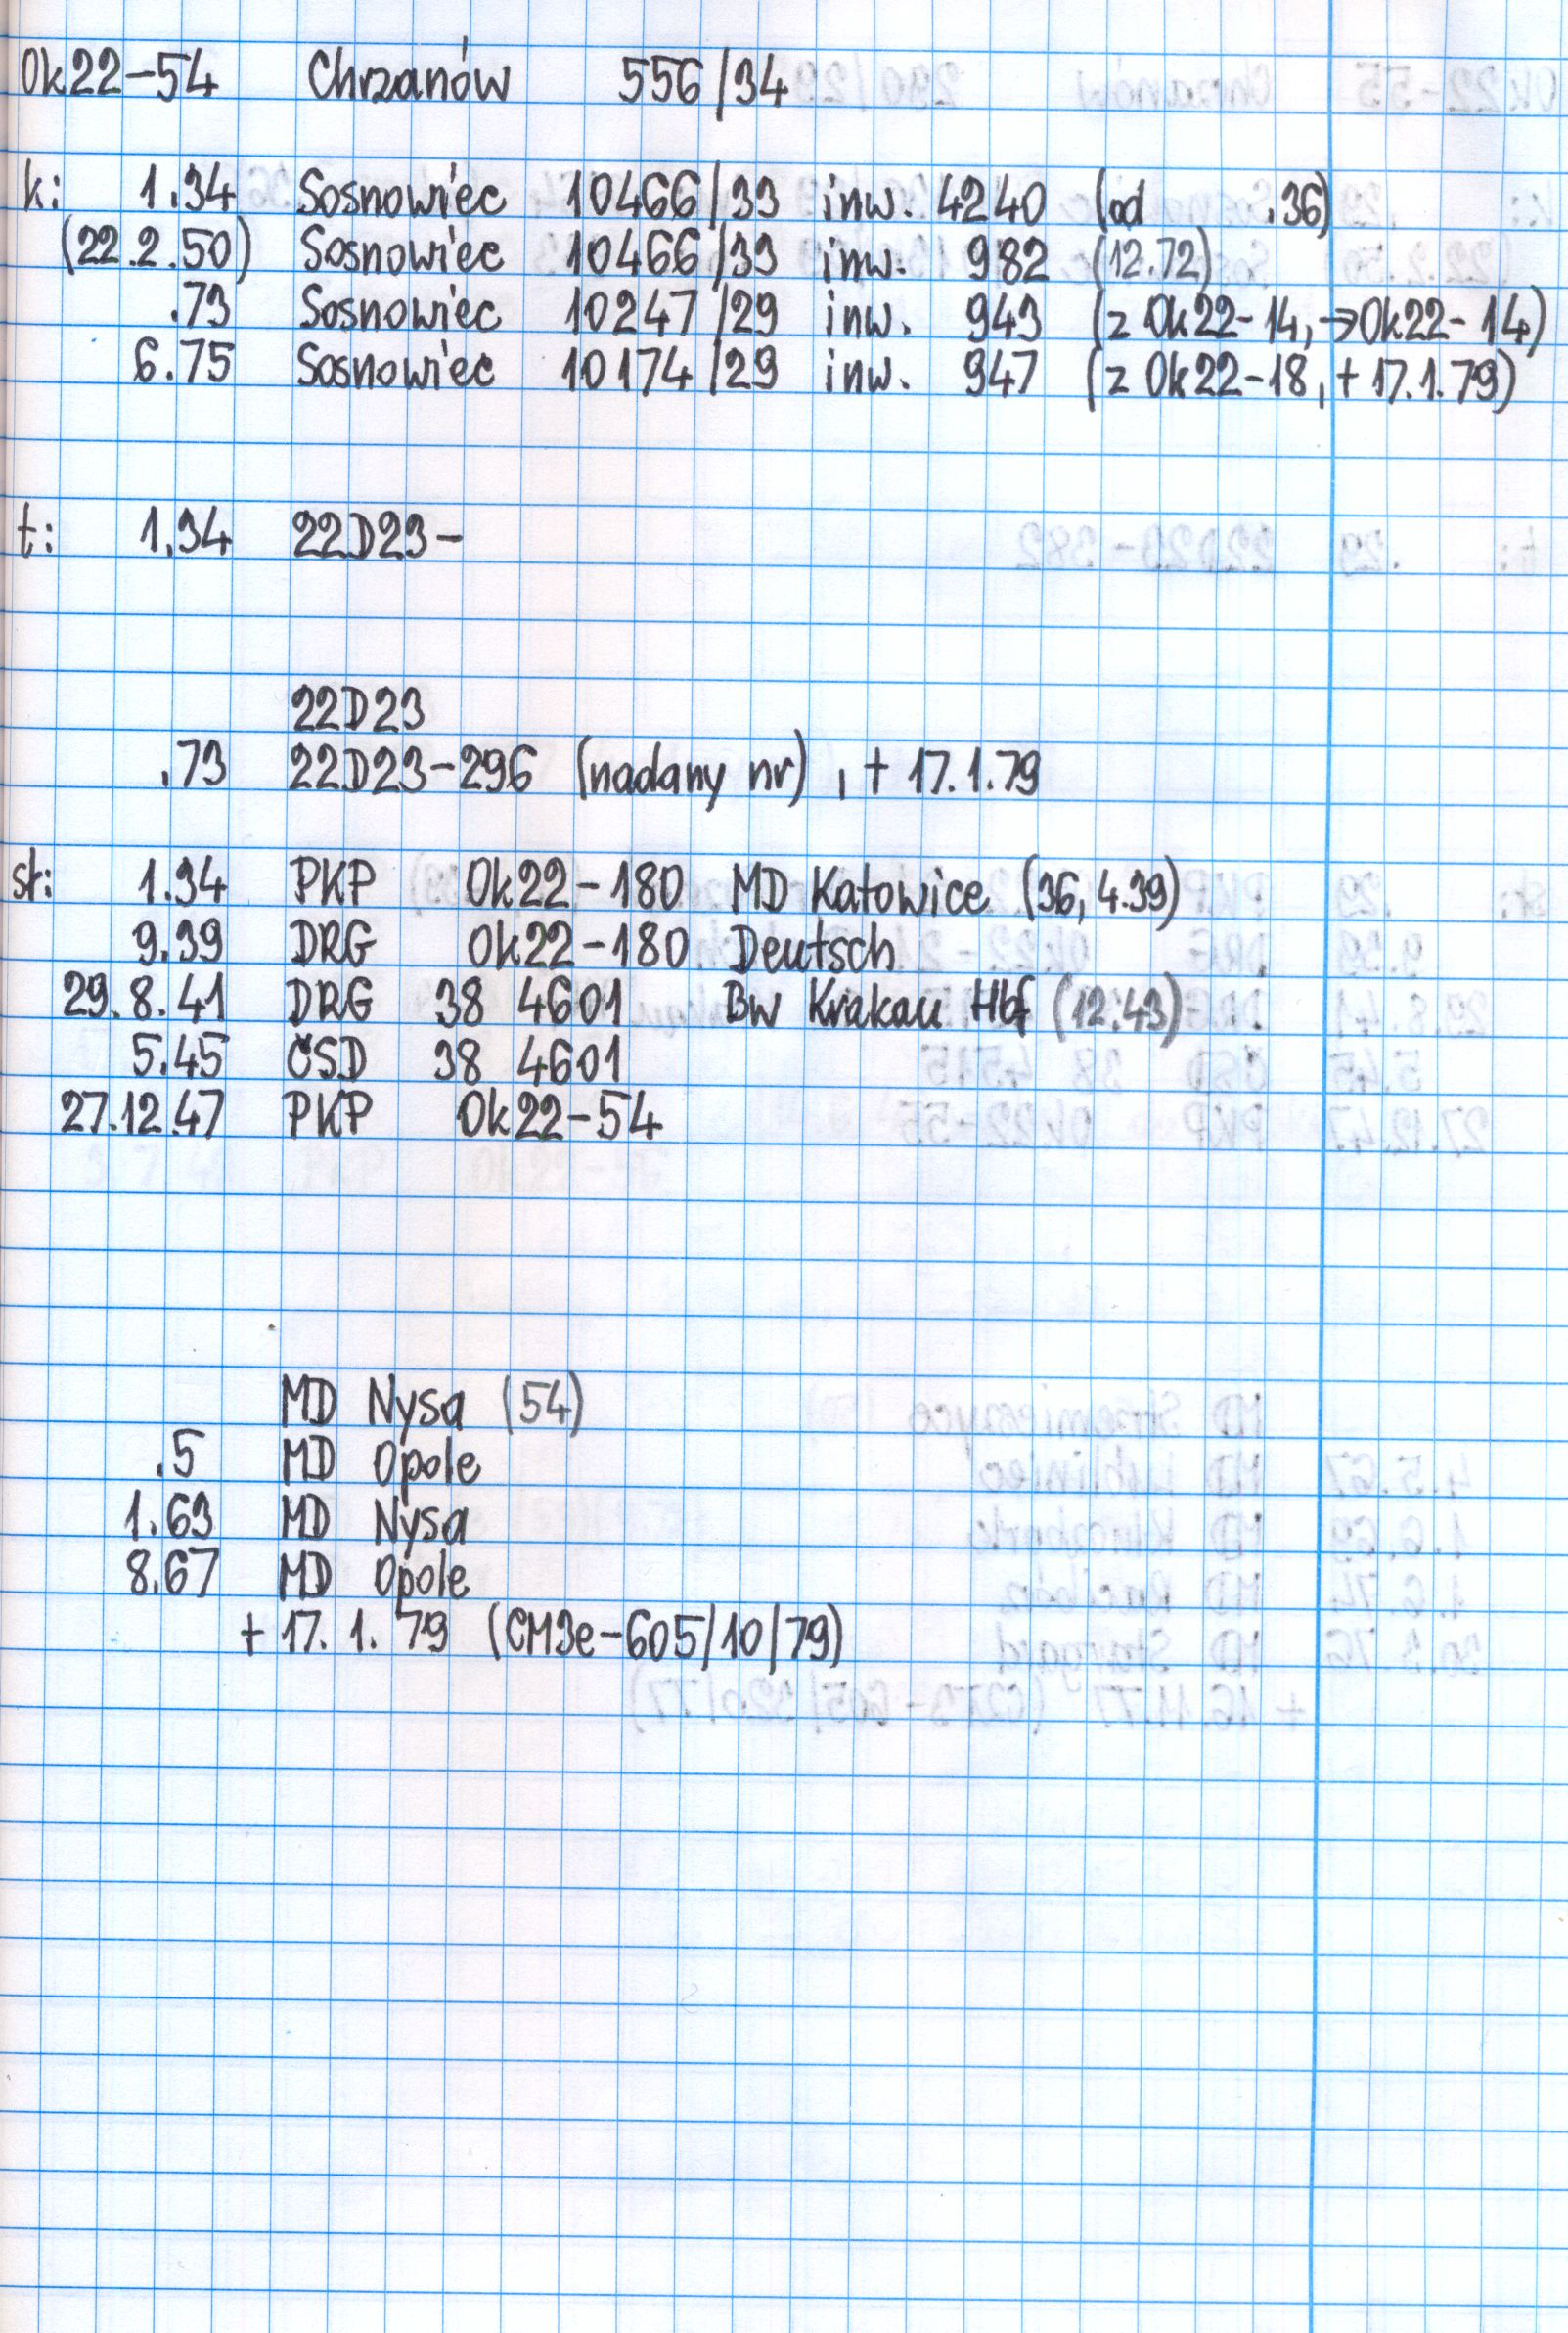 Ok22-54 Chrzanów 556/34
k: 1.34 Sosnowiec 10466/33 inw. 4240 (od .36)
(22.2.50) Sosnowiec 10466/33 inw. 982 (12.72)
.73 Sosnowiec 10247/29 inw. 943 (z Ok22-14, →Ok22-14)
6.75 Sosnowiec 10174/29 inw. 947 (z Ok22-18, + 17.1.79)
t: 1.34 22D23-
22D23
.73 22D23-296 (nadany nr), + 17.1.79
st: 1.34 PKP Ok22-180 MD Katowice (36, 4.39)
9.39 DRG Ok22-180 Deutsch
29.8.41 DRG 38 4601 Bw Krakau Hbf (12.43)
5.45 ČSD 38 4601
27.12.47 PKP Ok22-54
MD Nysa (54)
.5 MD Opole
1.63 MD Nysa
8.67 MD Opole
+ 17. 1. 79 (CM3e-605/10/79)